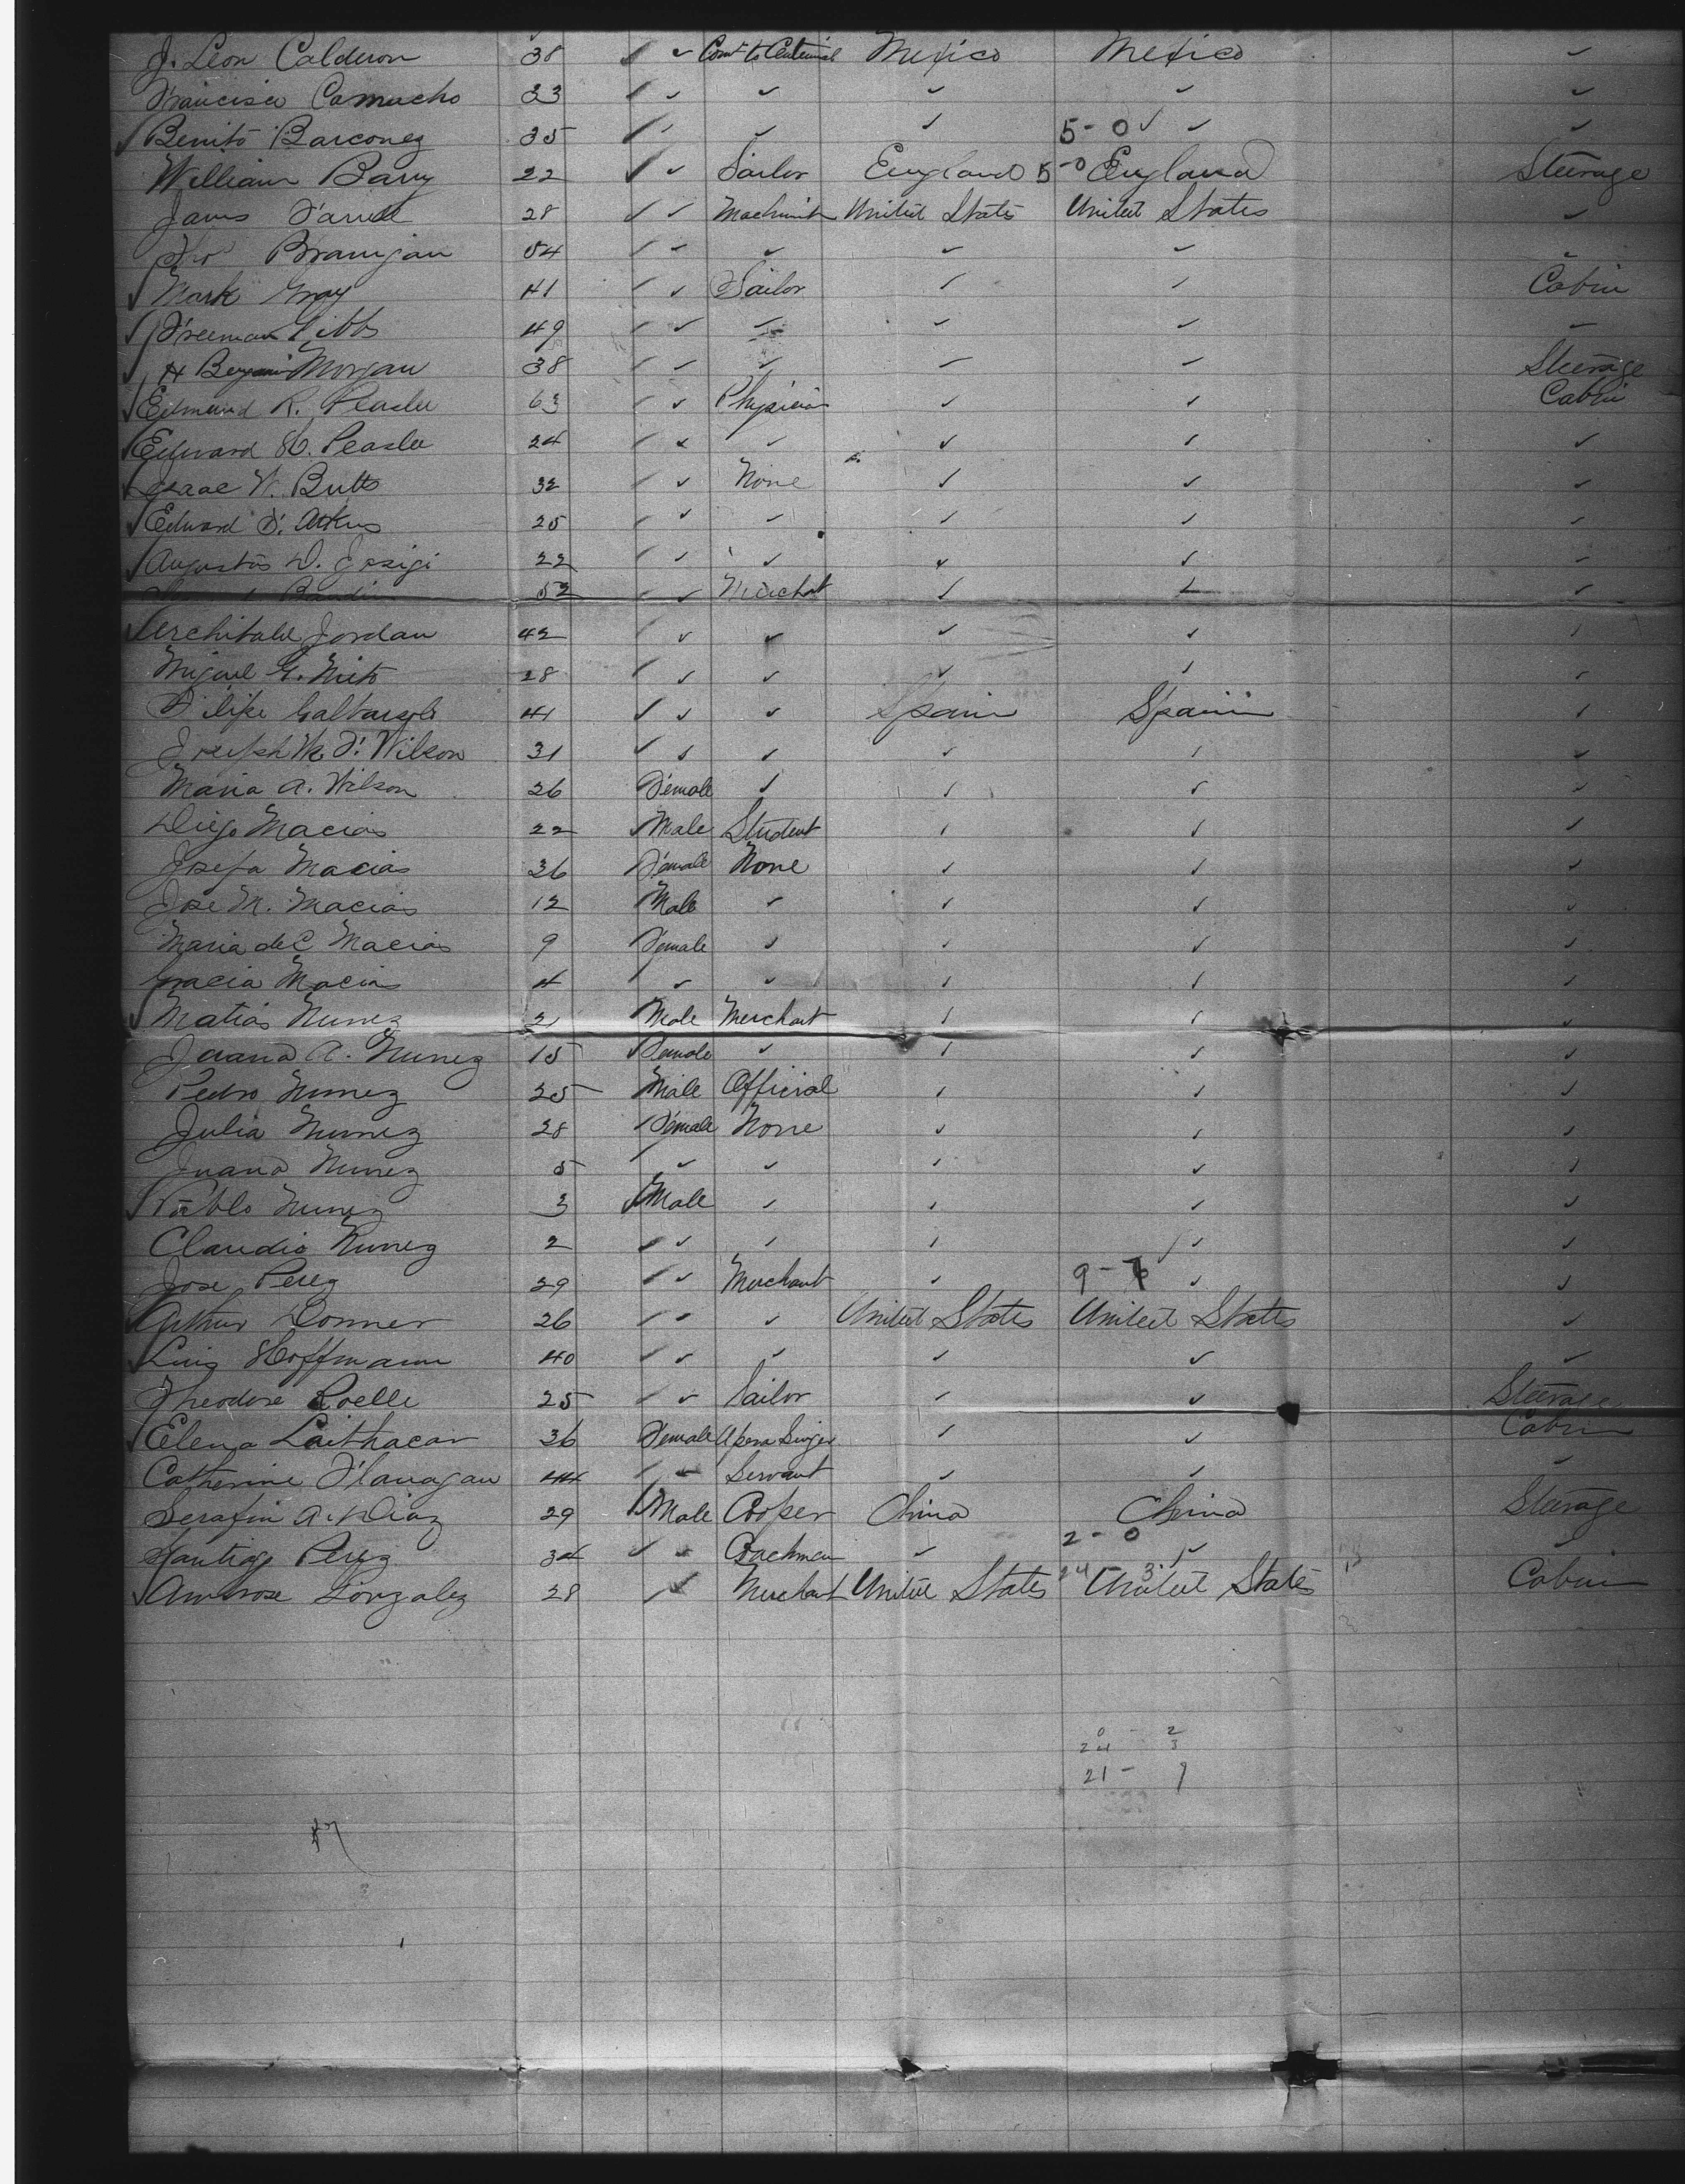 J. Leon Calderon 38 ✓ ✓ Comr to Centennial Mexico Mexico ✓
Francisco Camacho 33 ✓ ✓ ✓ ✓ ✓ ✓
✓ Benito Barconez 35 ✓ ✓ ✓ ✓ 5-0 ✓ ✓ ✓
William Barry 22 ✓ ✓ Sailor England 5-0 England Steerage
James Farrell 28 ✓ ✓ Machinist United States United States ✓
Branigan 54 ✓ ✓ ✓ ✓ ✓ ✓
✓ Mark Gray 41 ✓ ✓ Sailor ✓ ✓ Cabin
✓ Freeman Gibbs 49 ✓ ✓ ✓ ✓ ✓ ✓
✓ H Benjamin Morgan 38 ✓ ✓ ✓ ✓ ✓ Steerage
✓ Edmund R. Peaslee 63 ✓ ✓ Physician ✓ ✓ Cabin
✓ Edward H. Peaslee 24 ✓ ✓ ✓ ✓ ✓ ✓
✓ Isaac W. Butts 32 ✓ ✓ None ✓ ✓ ✓
✓ Edward F. Atkins 25 ✓ ✓ ✓ ✓ ✓ ✓
✓ Augustus D. Iasigi 22 ✓ ✓ ✓ ✓ ✓ ✓
52 ✓ ✓ Merchant ✓ ✓ ✓
✓ Archibald Jordan 42 ✓ ✓ ✓ ✓ ✓ ✓
Miguel G. Nieto 28 ✓ ✓ ✓ ✓ ✓ ✓
Filipe 41 ✓ ✓ ✓ Spain Spain ✓
Joseph W. F. Wilson 31 ✓ ✓ ✓ ✓ ✓ ✓
Maria A. Wilson 26 Female ✓ ✓ ✓ ✓
Diego Macias 22 Male Student ✓ ✓ ✓
Josefa Macias 36 Female None ✓ ✓ ✓
Jose M. Macias 12 Male ✓ ✓ ✓ ✓
Maria de C Macias 9 Female ✓ ✓ ✓ ✓
Gracia Macias 4 ✓ ✓ ✓ ✓ ✓ ✓
✓ Matias Nunez 21 Male Merchant ✓ ✓ ✓
Juana A. Nunez 15 Female ✓ ✓ ✓ ✓
Pedro Nunez 25 Male Official ✓ ✓ ✓
Julia Nunez 28 Female None ✓ ✓ ✓
Juana Nunez 5 ✓ ✓ ✓ ✓ ✓ ✓
✓ Pablo Nunez 3 Male ✓ ✓ ✓ ✓
Claudio Nunez 2 ✓ ✓ ✓ ✓ ✓ ✓
Jose Perez 29 ✓ ✓ Merchant ✓ 9- ✓ ✓
Arthur Donner 26 ✓ ✓ ✓ United States United States ✓
✓ Luis Hoffmann 40 ✓ ✓ ✓ ✓ ✓ ✓
Theodore Roelle 25 ✓ ✓ Sailor ✓ ✓ Steerage
✓ Elena 36 Female Opera Singer ✓ ✓ Cabin
Catherine Flanagan 44 ✓ ✓ Servant ✓ ✓ ✓
Serafin A. Diaz 29 Male Cooper China China Steerage
Santiago Perez 34 ✓ ✓ Coachman ✓ 2-0 ✓ ✓
✓ Ambrose Gonzalez 28 ✓ ✓ Merchant United States 24 3 United States Cabin
0 - 2
24 3
21 - 9